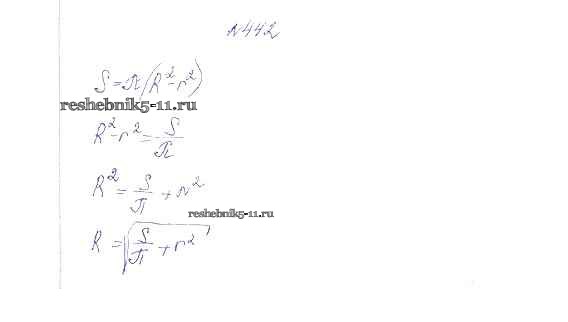 N442
S=π(R²-r²)
reshebnik5-11.ru
R²-r²=S/π
R²=S/π+r²
reshebnik5-11.ru
R=√(S/π+r²)